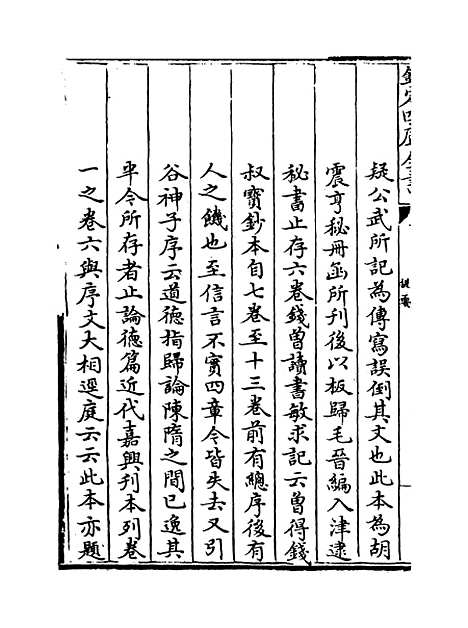 欽定四庫全書
提要
疑公武所記為傳寫誤倒其文也此本為胡
震亨秘冊函所刊後以板歸毛晉編入津逮
秘書止存六卷錢曾讀書敏求記云曾得錢
叔寳鈔本自七卷至十三卷前有總序後有
人之饑也至信言不實四章令皆失去又引
谷神子序云道德指歸論陳隋之間已逸其
半令所存者止論德篇近代嘉興刊本列卷
一之卷六與序文大相逕庭云云此本亦題